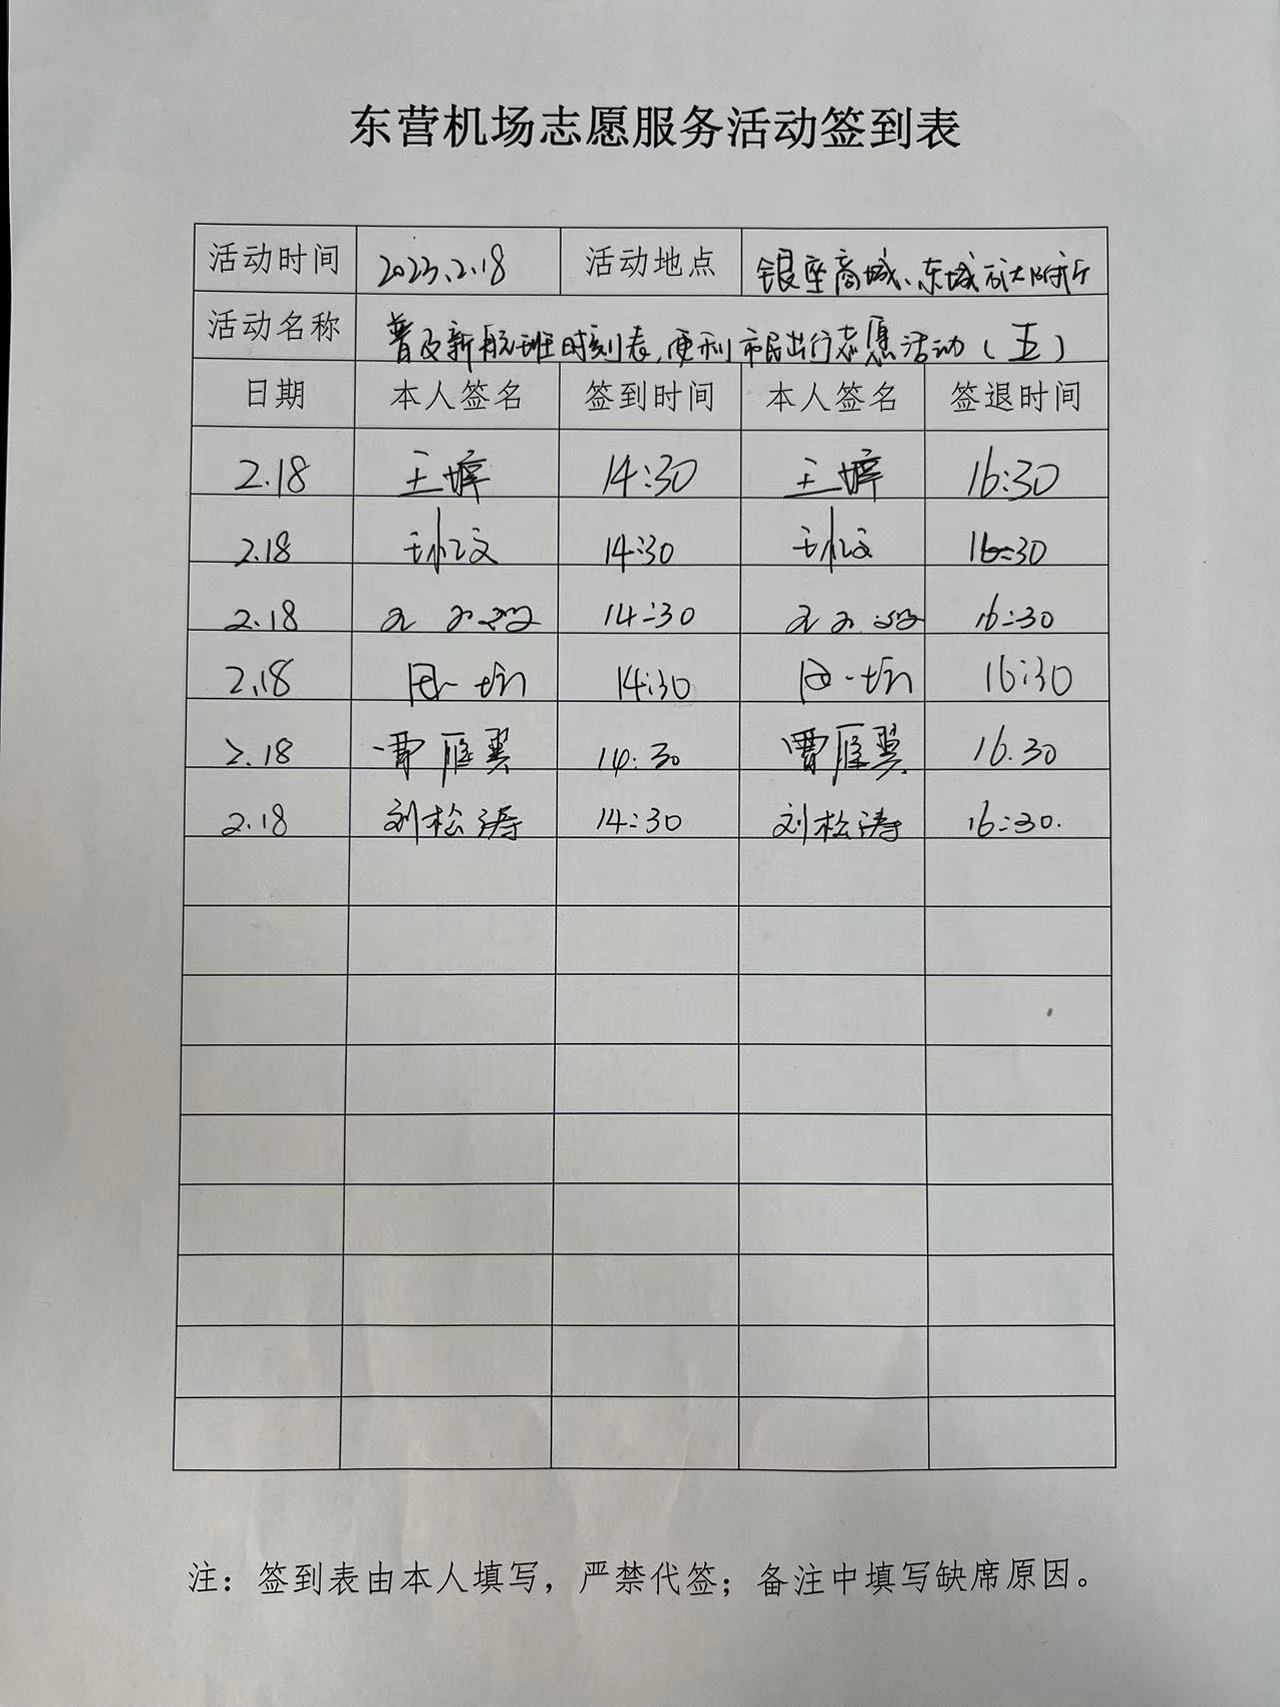 东营机场志愿服务活动签到表
活动时间 2023.2.18 活动地点 银座商城、东城
活动名称 普及新航班时刻表,便利市民出行志愿活动(五)
日期 本人签名 签到时间 本人签名 签退时间
2.18 王 14:30 王 16:30
2.18 14:30 16:30
2.18 14:30 16:30
2.18 14:30 16:30
2.18 贾雁翼 14:30 贾雁翼 16.30
2.18 刘松涛 14:30 刘松涛 16:30.
注:签到表由本人填写,严禁代签;备注中填写缺席原因。